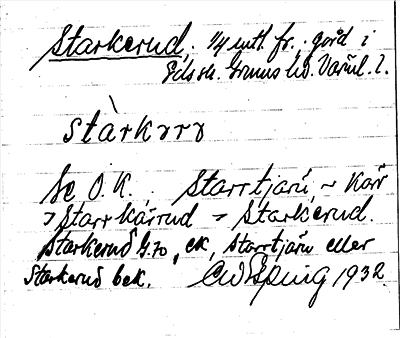 Starkerud, 1/4 mtl. fr., gård i
Eds sn. Grums hd. Värml. l.
stàrkərə
Se O.K. Starrtjärn, ~ Kärr
> Starrkärrud > Starkerud.
Starkerud G.70, ek, Starrtjärn eller
Starkerud bek. CWEsping 1932.